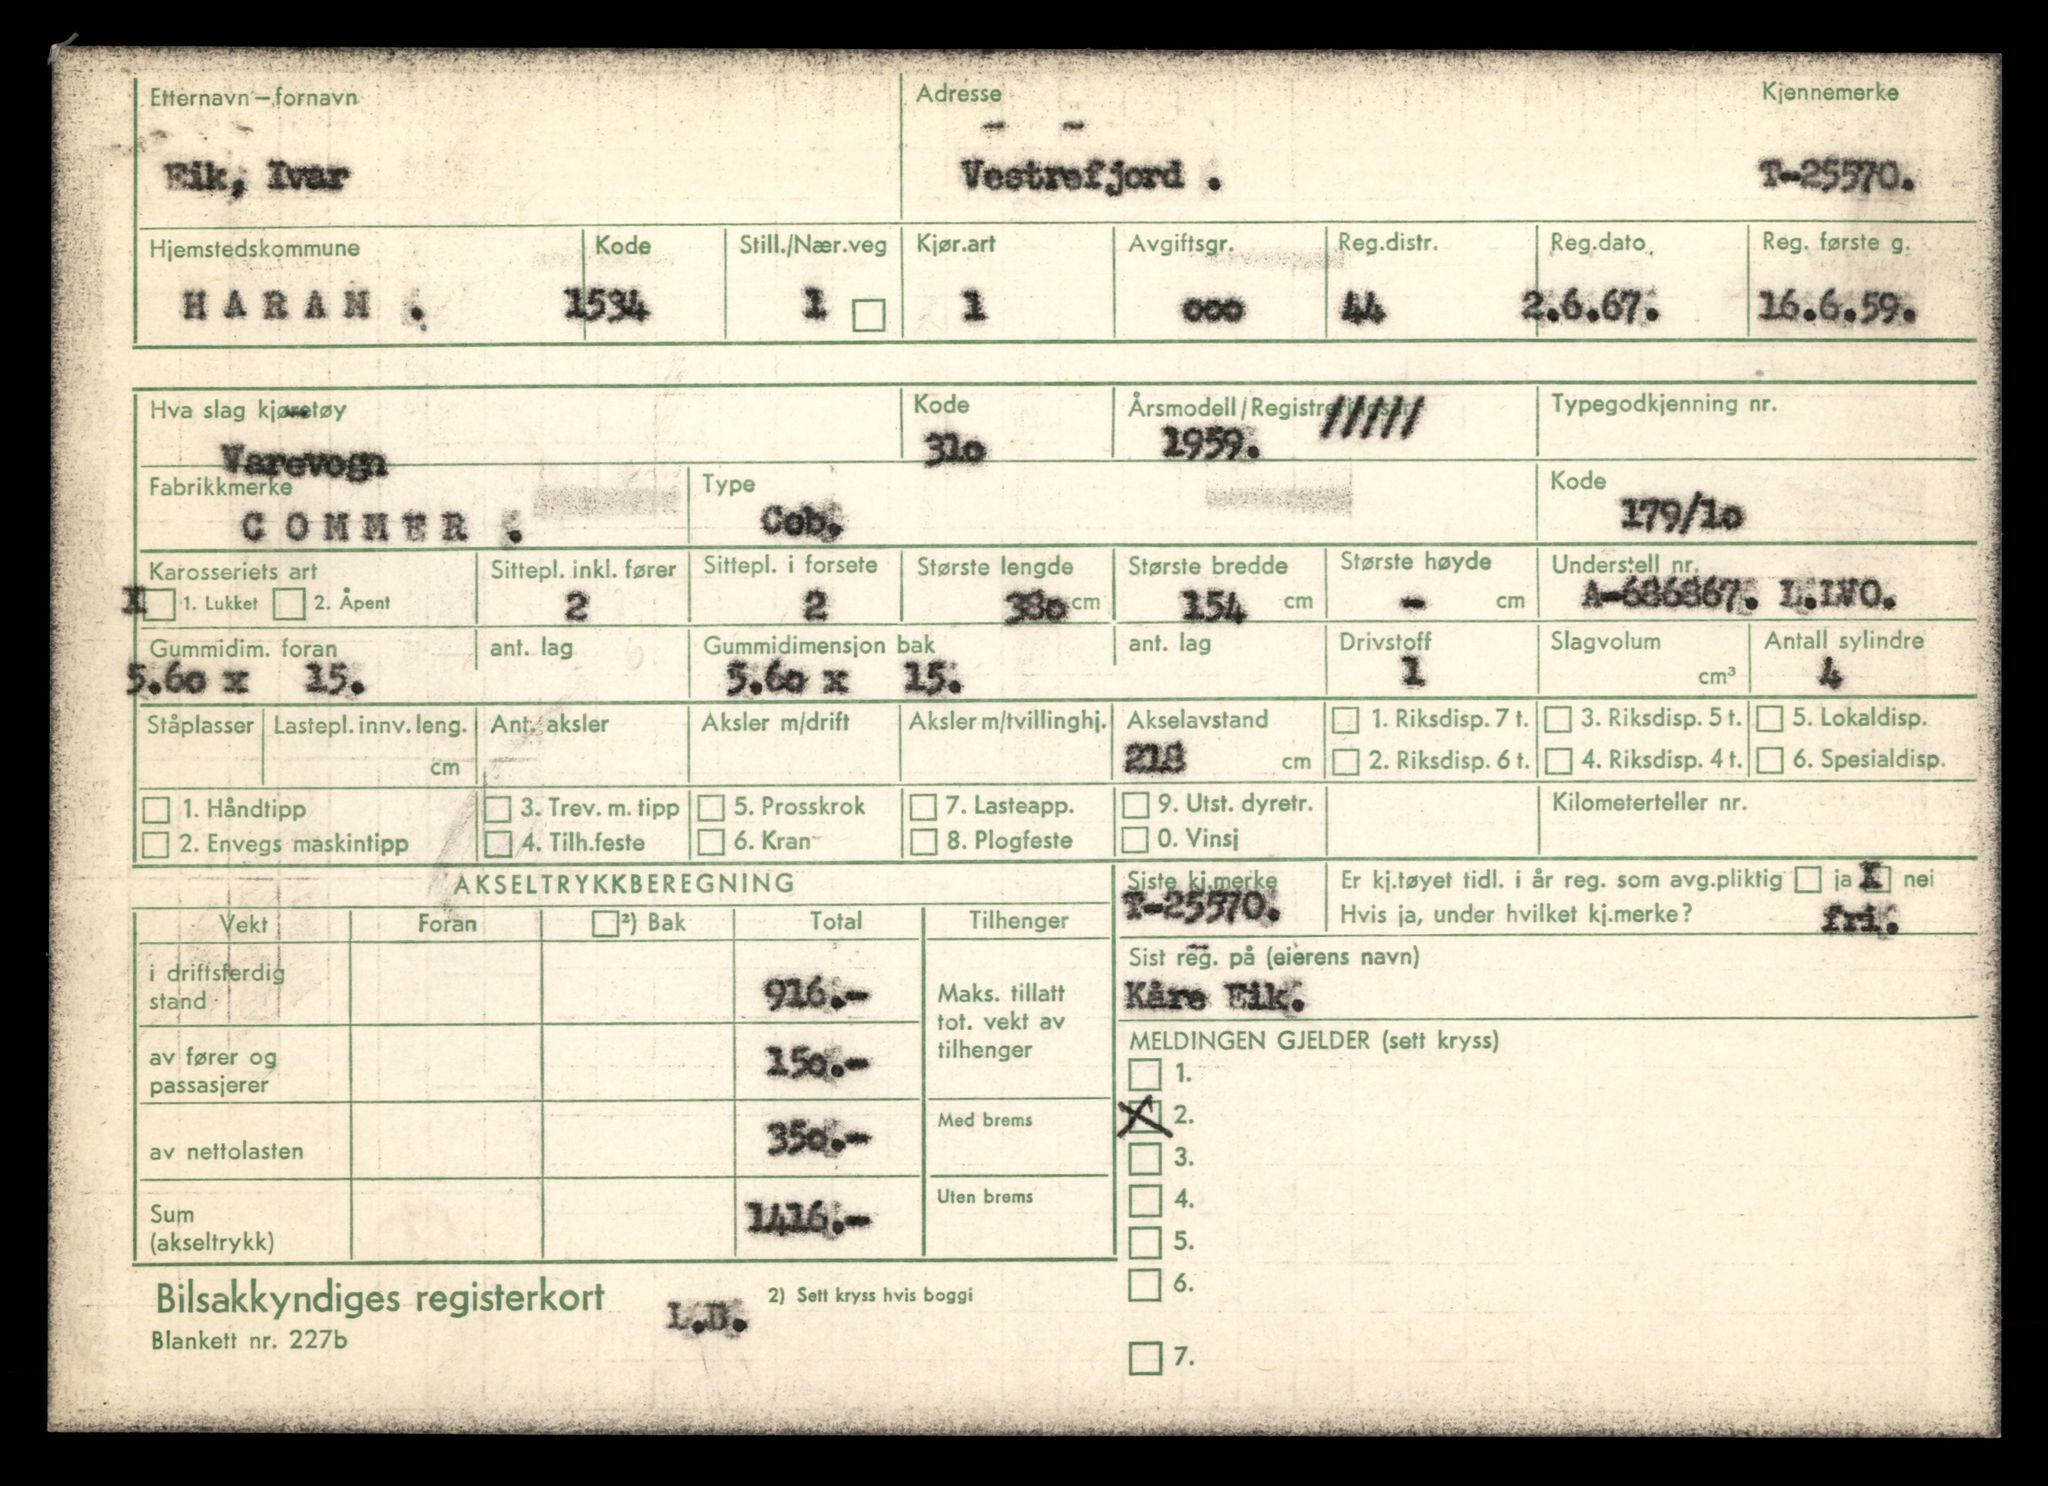 Etternavn – fornavn Adresse Kjennemerke
Eik, Ivar Vestrefjord . T-25570.
Hjemstedskommune Kode Still./Nær.veg Kjør.art Avgiftsgr. Reg.distr. Reg.dato Reg. første g.
HARAM . 1534 1 1 ooo 44 2.6.67. 16.6.59.
Hva slag kjøretøy Kode Årsmodell/Registreringsår Typegodkjenning nr.
Varevogn 31o 1959. /////
Fabrikkmerke Type Kode
COMMER . Cob. 179/1o
Karosseriets art Sittepl. inkl. fører Sittepl. i forsete Største lengde Største bredde Største høyde Understell nr.
X 1. Lukket 2. Åpent 2 2 38o cm 154 cm - cm A-686867. L.LVO.
Gummidim. foran ant. lag Gummidimensjon bak ant. lag Drivstoff Slagvolum Antall sylindre
5.6o x 15. 5.6o x 15. 1 cm³ 4
Ståplasser Lastepl. innv. leng. Ant. aksler Aksler m/drift Aksler m/tvillinghj. Akselavstand 1. Riksdisp. 7 t. 3. Riksdisp. 5 t. 5. Lokaldisp.
cm 218 cm 2. Riksdisp. 6 t. 4. Riksdisp. 4 t. 6. Spesialdisp.
1. Håndtipp 3. Trev. m. tipp 5. Prosskrok 7. Lasteapp. 9. Utst. dyretr. Kilometerteller nr.
2. Envegs maskintipp 4. Tilh.feste 6. Kran 8. Plogfeste 0. Vinsj
AKSELTRYKKBEREGNING Siste kj.merke Er kj.tøyet tidl. i år reg. som avg.pliktig ja X nei
T-25570. Hvis ja, under hvilket kj.merke? fri.
Vekt Foran ²) Bak Total Tilhenger
Sist reg. på (eierens navn)
Kåre Eik.
i driftsferdig
stand 916.-
Maks. tillatt
tot. vekt av
tilhenger
MELDINGEN GJELDER (sett kryss)
av fører og
passasjerer 15o.-
1.
Med brems X 2.
av nettolasten 35o.-
3.
Uten brems 4.
Sum
(akseltrykk) 1416.-
5.
6.
Bilsakkyndiges registerkort L.B. 2) Sett kryss hvis boggi
Blankett nr. 227b
7.